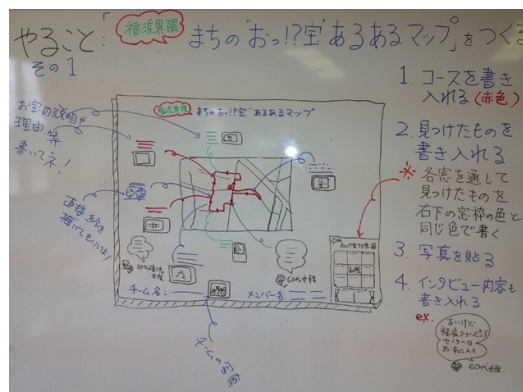 やること「福浜界隈 まちの"おっ!?宝"あるあるマップ」をつくる
その1
お宝の説明や
理由等
書いてネ!
直接絵を
描いてもいいよ!
福浜界隈 まちの"おっ!?宝"あるあるマップ
チーム名:
メンバー名:
60代女性
チームの写真
1. コースを書き
入れる(赤色)
2. 見つけたものを
書き入れる
※ 各窓を通して
見つけたものを
右下の窓枠の色と
同じ色で書く
3. 写真を貼る
4. インタビュー内容も
書き入れる
ex.
60代女性